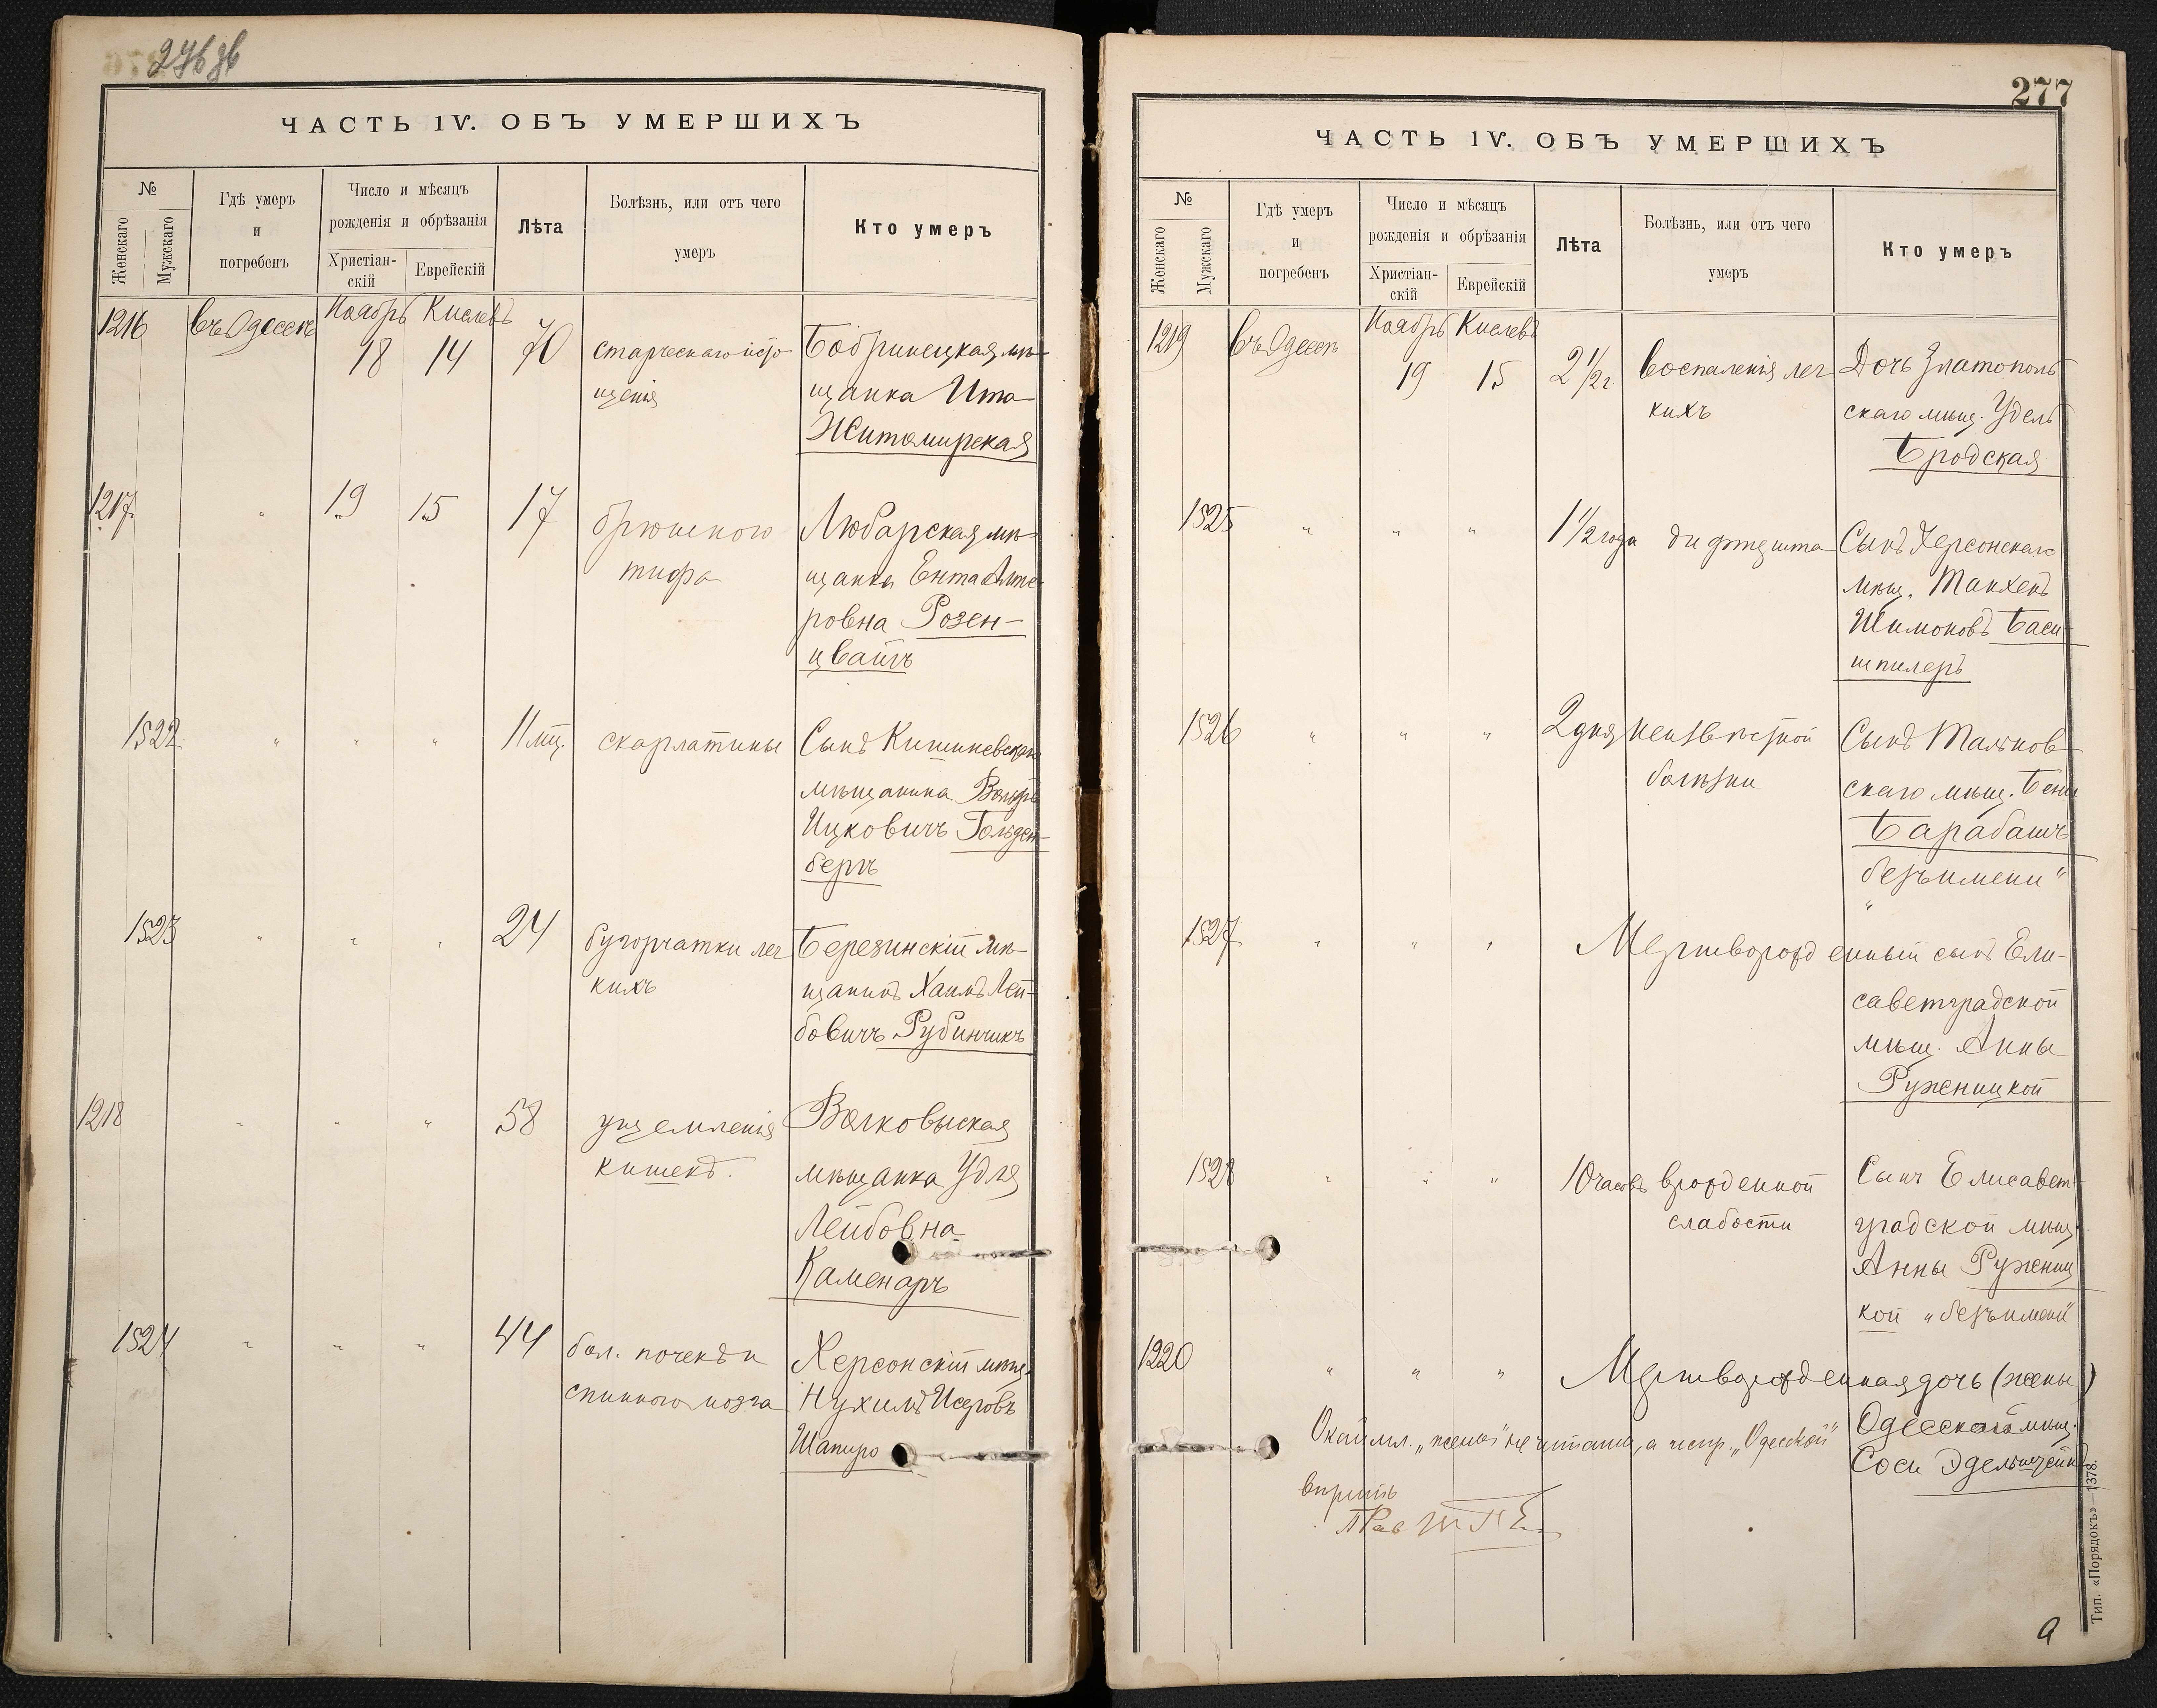 276 об
ЧАСТЬ IV. ОБЪ УМЕРШИХЪ
№
Женскаго
Мужскаго
Гдѣ умеръ
и
погребенъ
Число и мѣсяцъ
рожденія и обрѣзанія
Христіан-
скій
Еврейскій
Лѣта
Болѣзнь, или отъ чего
умеръ
Кто умеръ
1216 Въ Одессѣ Ноябрь Кислевъ
18 14 70 старческаго исто- Бобринецкая мѣ-
щенія щанка Ита
Житомирская
1217 " 19 15 17 брюшного Любарская мѣ-
тифа щанка Ента Алте-
ровна Розен-
цвайгъ
1522 " " " 11 мц. скарлатины Сынъ Кишиневскаго
мѣщанина Вольфъ
Ицковичъ Гольден-
бергъ
1523 " " " 24 бугорчатки лег Березинскій мѣ-
кихъ щанинъ Хаимъ Лей-
бовичъ Рубинчикъ
1218 " " " 58 ущемленія Волковыская
кишекъ. мѣщанка Удля
Лейбовна
Каменаръ
1524 " " " 44 бол. почекъ и Херсонскій мѣщ.
спинного мозга Нухимъ Исеровъ
Шапиро
277
ЧАСТЬ IV. ОБЪ УМЕРШИХЪ
№
Женскаго
Мужскаго
Гдѣ умеръ
и
погребенъ
Число и мѣсяцъ
рожденія и обрѣзанія
Христіан-
скій
Еврейскій
Лѣта
Болѣзнь, или отъ чего
умеръ
Кто умеръ
1219 Въ Одессѣ Ноябрь Кислевъ
19 15 2 1/2 г. воспаленія лег Дочь Златополь
кихъ скаго мѣщ. Удель
Бродская
1525 " " " 1 1/2 года дифтерита Сынъ Херсонскаго
мѣщ. Манхенъ
Шимоновъ Баси-
шпилеръ
1526 " " " 2 дня неизвѣстной Сынъ Тальнов-
болѣзни скаго мѣщ. Бени
Барабашъ
"безъ имени"
1527 " " " Мертворожденный сынъ Ели-
саветградской
мѣщ. Анны
Руженицкой
1528 " " " 10 часовъ врожденной Сынъ Елисавет-
слабости градской мѣщ.
Анны Ружениц
кой "безъ имени"
1220 " " " Мертворожденная дочь (жены)
Одесской мѣщ.
Соси Эдельштейнъ
"жены" не читать, а испр. "Одесской"
вѣрить
Тип. «Порядокъ»—1378.